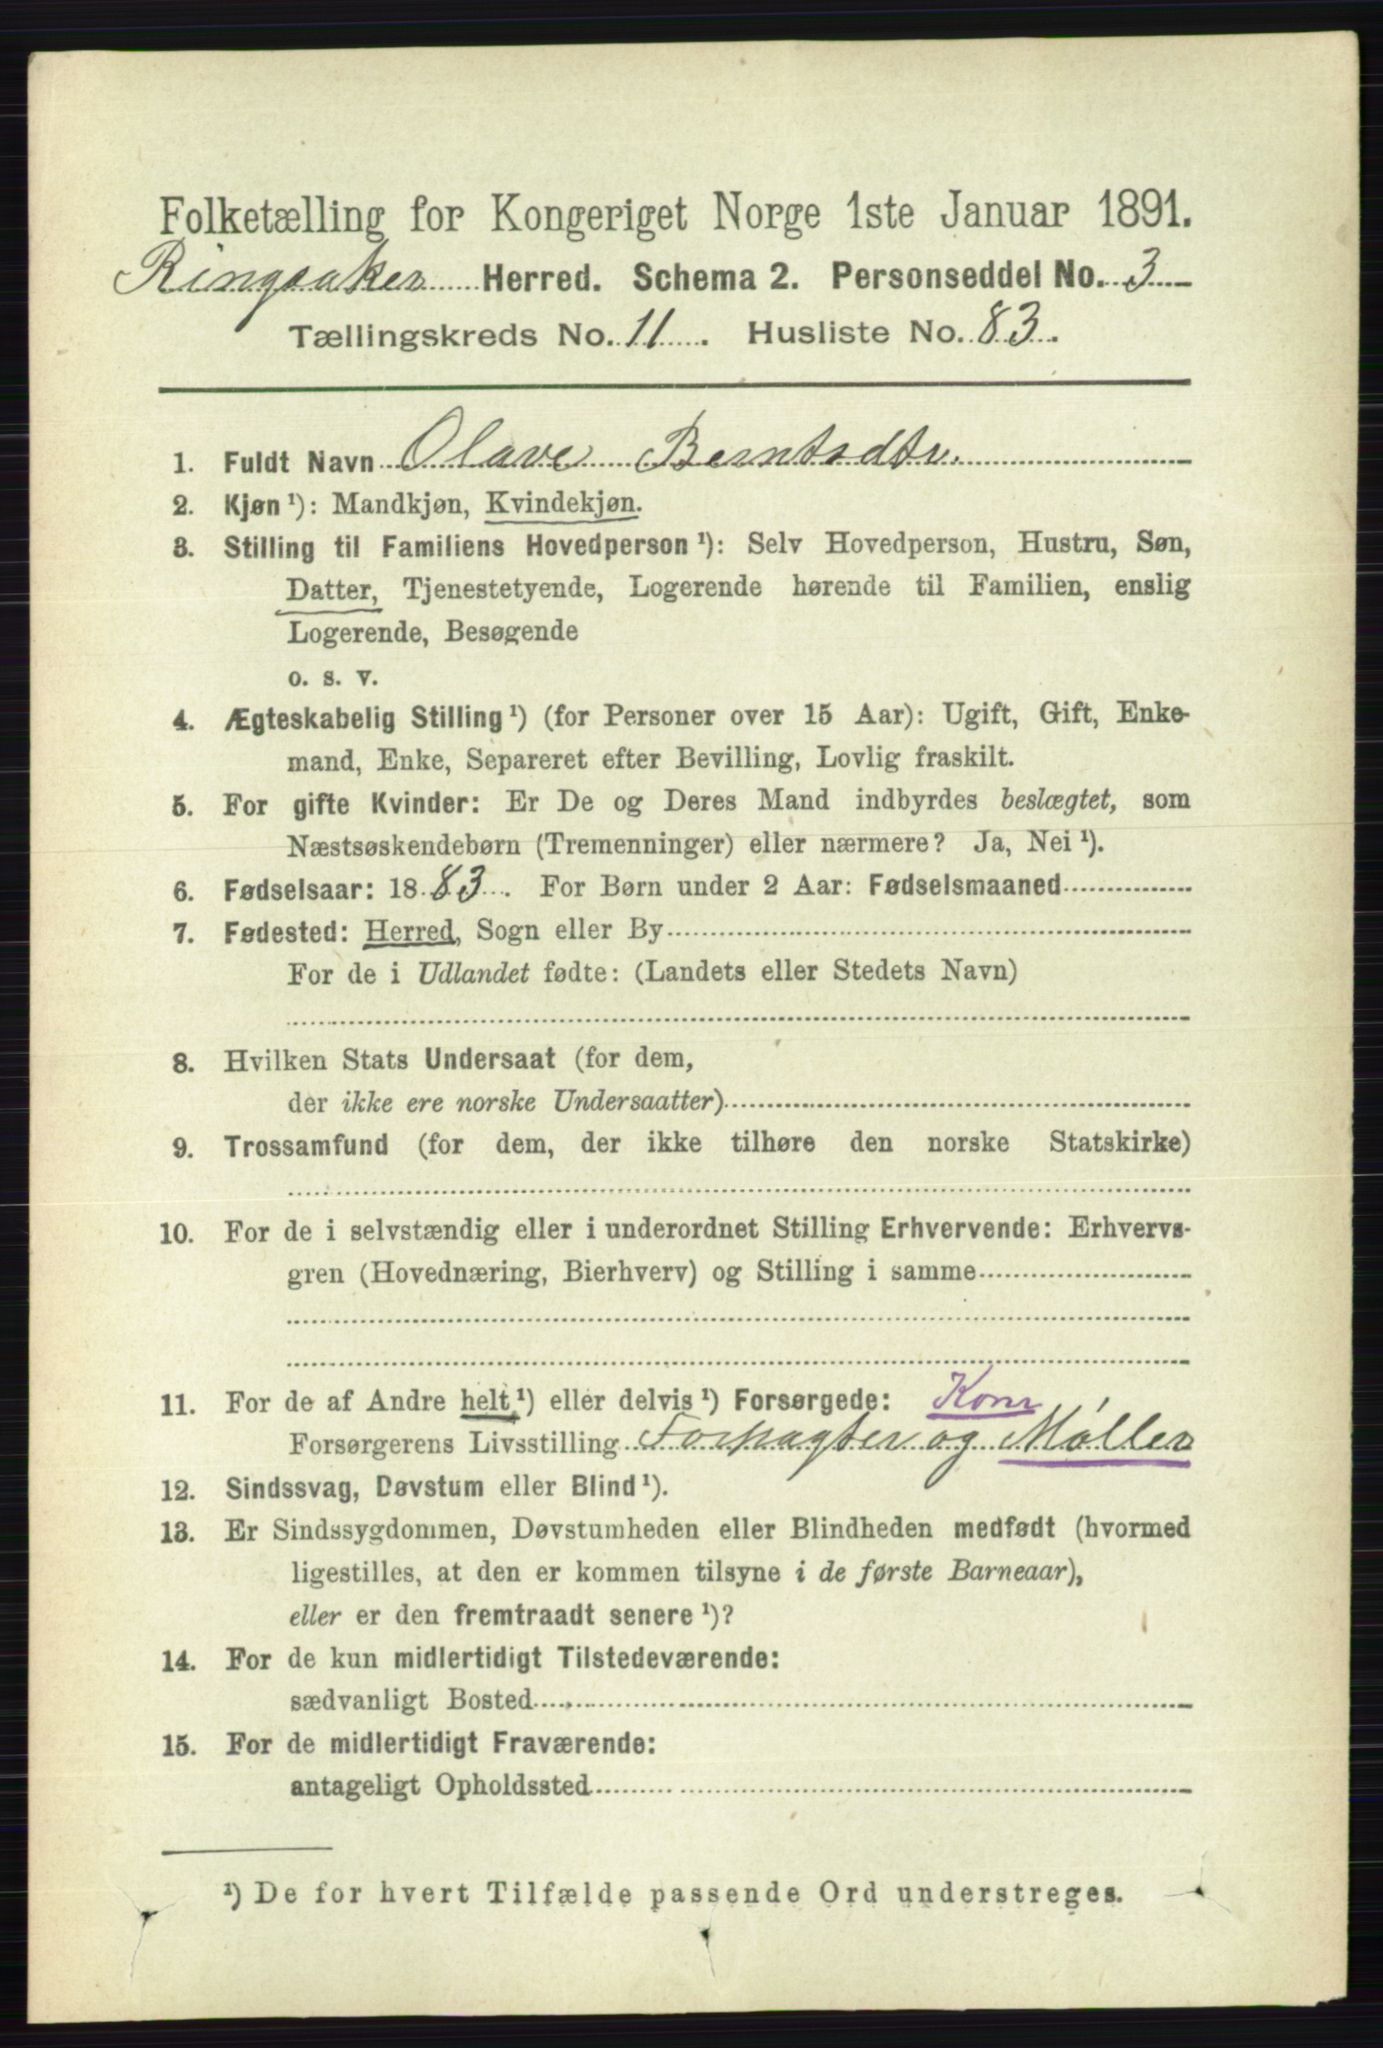 Folketælling for Kongeriget Norge 1ste Januar 1891.
Ringsaker Herred. Schema 2. Personseddel No. 3
Tællingskreds No. 11. Husliste No. 83.
1. Fuldt Navn Olave Berntsdtr.
2. Kjøn ¹): Mandkjøn, Kvindekjøn.
3. Stilling til Familiens Hovedperson ¹): Selv Hovedperson, Hustru, Søn,
Datter, Tjenestetyende, Logerende hørende til Familien, enslig
Logerende, Besøgende
o. s. v.
4. Ægteskabelig Stilling ¹) (for Personer over 15 Aar): Ugift, Gift, Enke-
mand, Enke, Separeret efter Bevilling, Lovlig fraskilt.
5. For gifte Kvinder: Er De og Deres Mand indbyrdes beslægtet, som
Næstsøskendebørn (Tremenninger) eller nærmere? Ja, Nei ¹).
6. Fødselsaar: 1883. For Børn under 2 Aar: Fødselsmaaned
7. Fødested: Herred, Sogn eller By
For de i Udlandet fødte: (Landets eller Stedets Navn)
8. Hvilken Stats Undersaat (for dem,
der ikke ere norske Undersaatter)
9. Trossamfund (for dem, der ikke tilhøre den norske Statskirke)
10. For de i selvstændig eller i underordnet Stilling Erhvervende: Erhvervs-
gren (Hovednæring, Bierhverv) og Stilling i samme
11. For de af Andre helt ¹) eller delvis ¹) Forsørgede: Korn
Forsørgerens Livsstilling Forpagter og Møller
12. Sindssvag, Døvstum eller Blind ¹).
13. Er Sindssygdommen, Døvstumheden eller Blindheden medfødt (hvormed
ligestilles, at den er kommen tilsyne i de første Barneaar),
eller er den fremtraadt senere ¹)?
14. For de kun midlertidigt Tilstedeværende:
sædvanligt Bosted
15. For de midlertidigt Fraværende:
antageligt Opholdssted
¹) De for hvert Tilfælde passende Ord understreges.